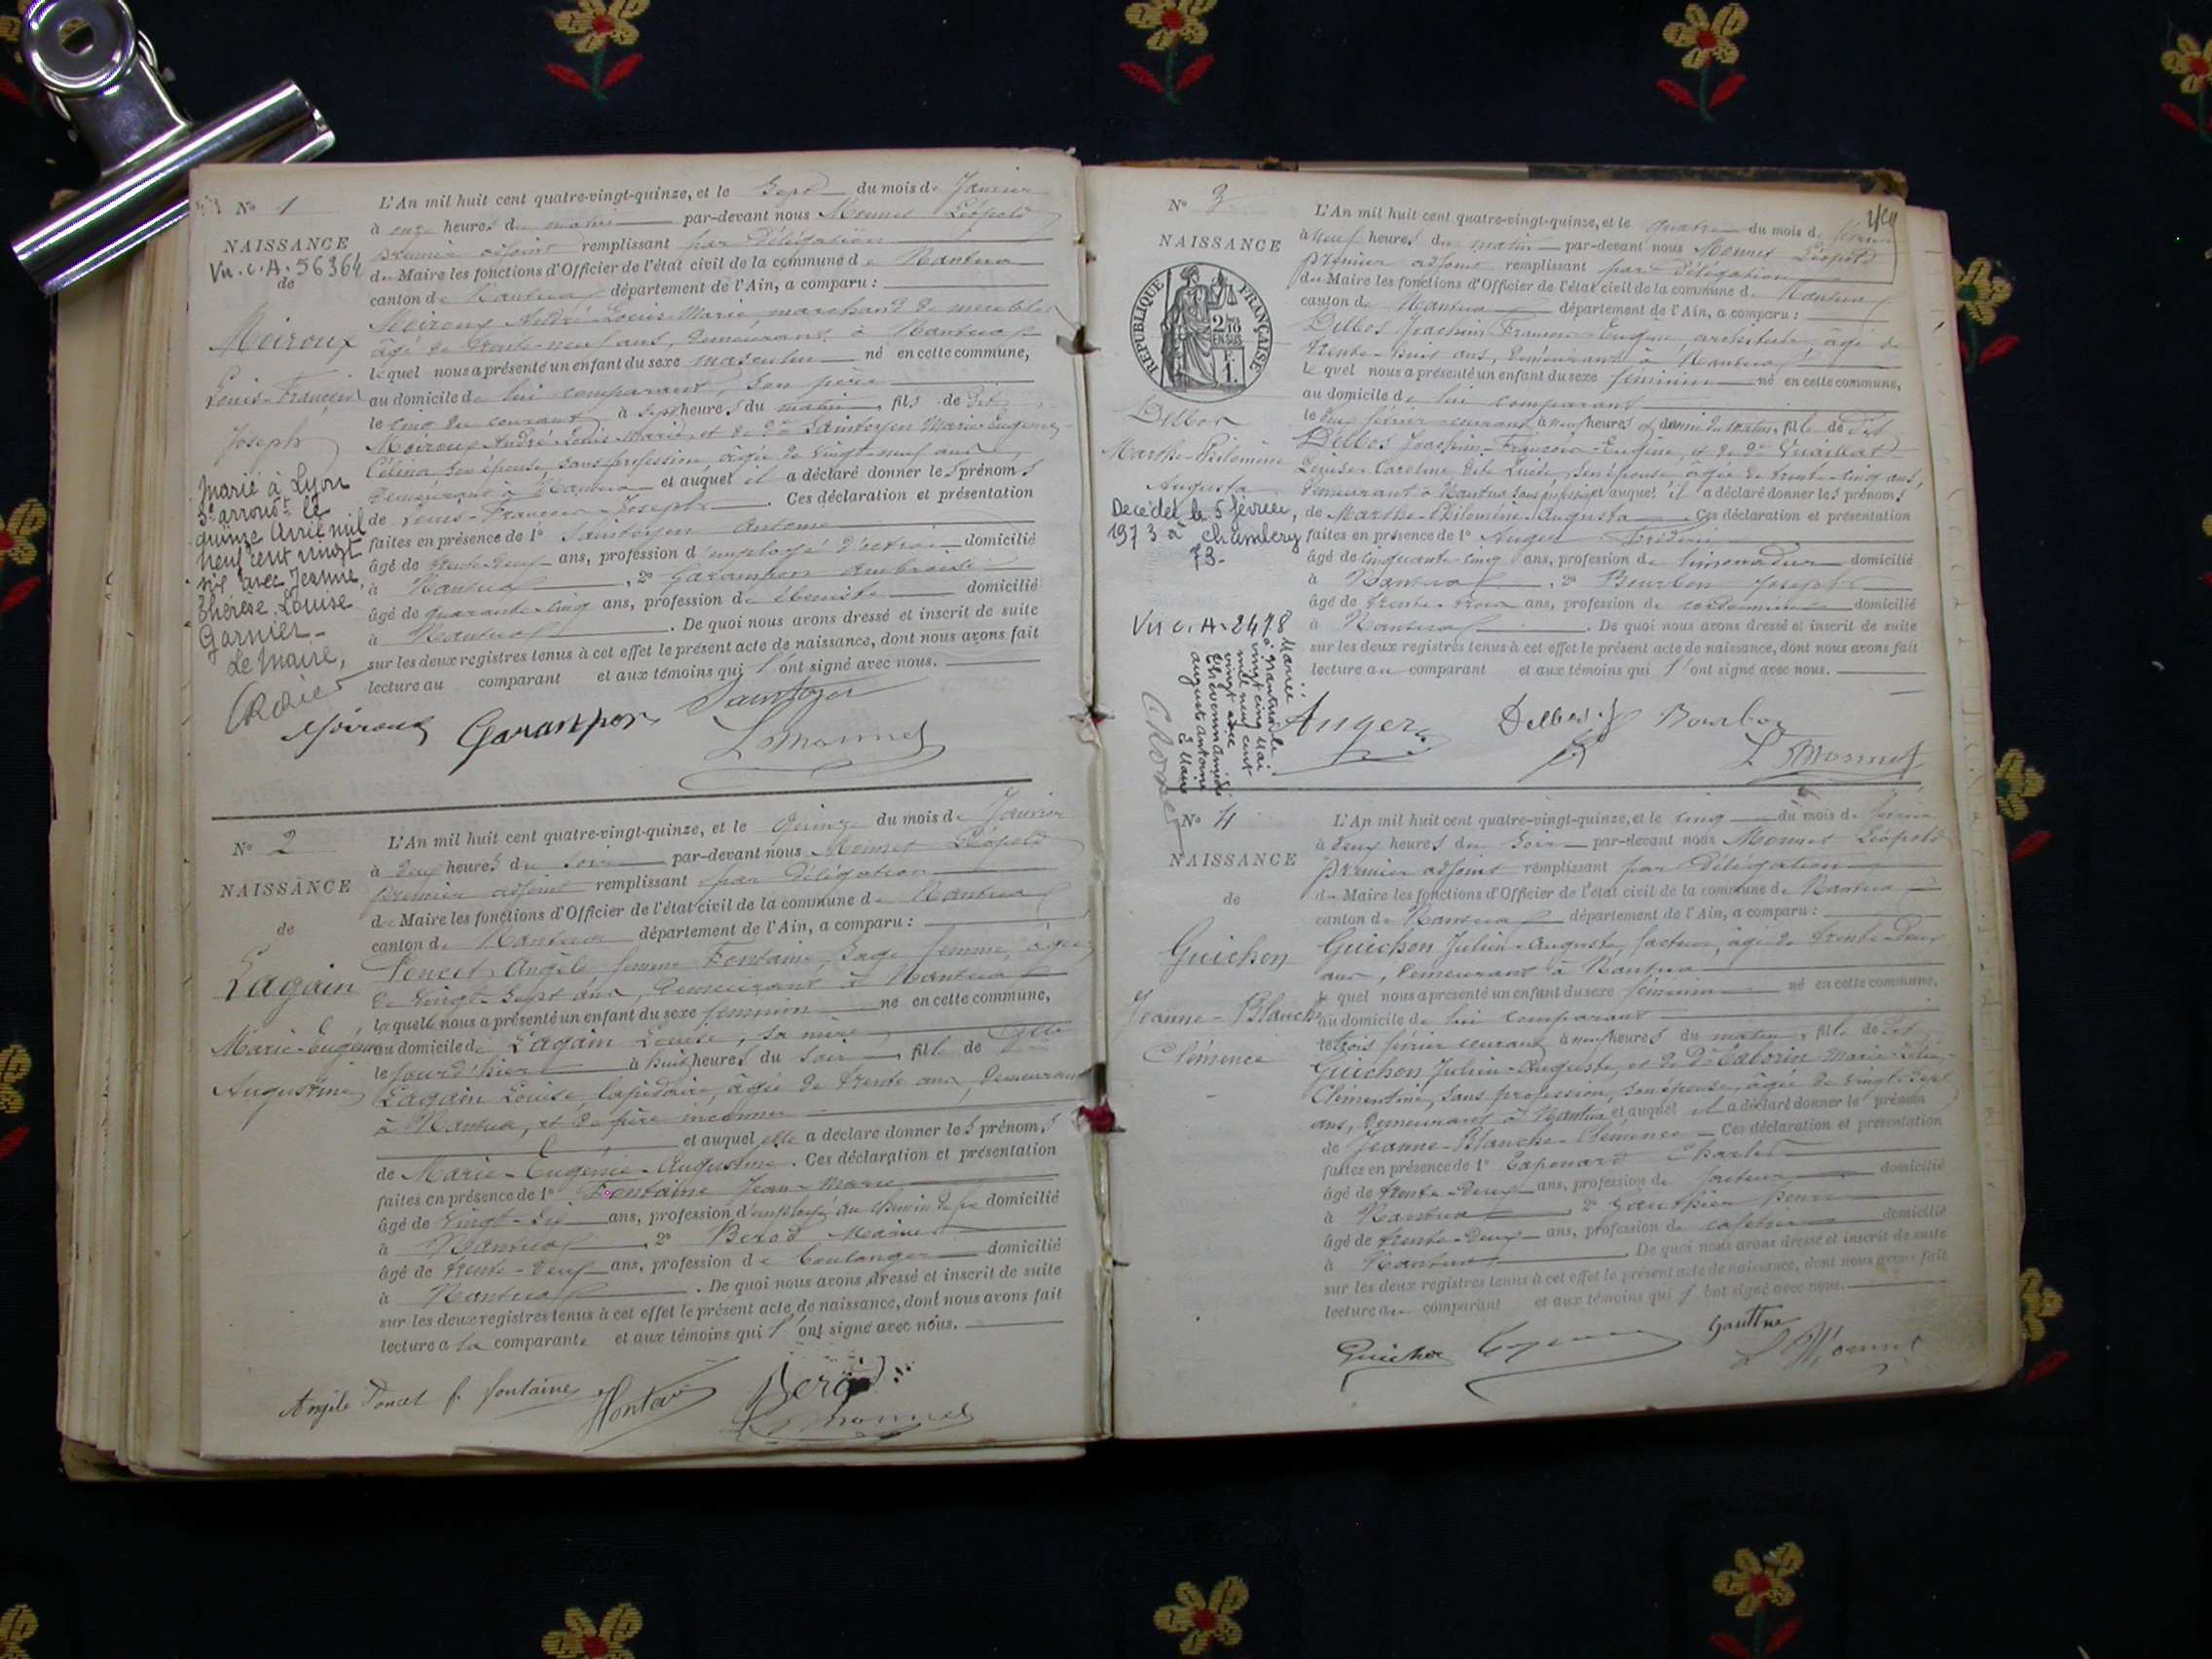 N° 1
NAISSANCE
Vu.c.A.56364
de
Moiroux
Louis-François
Joseph
Marié à Lyon
3e arrondt le
quinze Avril mil
neuf cent vingt
six avec Jeanne,
Thérèse Louise
Garnier
Le Maire,
L'An mil huit cent quatre-vingt-quinze, et le sept du mois de Janvier
à onze heures du matin par-devant nous Monnet Léopold
premier adjoint remplissant par délégation
du Maire les fonctions d'Officier de l'état civil de la commune de Nantua
canton de Nantua département de l'Ain, a comparu :
Moiroux André-Louis-Marie, marchand de meubles
âgé de trente-neuf ans, demeurant à Nantua
lequel nous a présenté un enfant du sexe masculin né en cette commune,
au domicile de lui comparant, son père
le cinq du courant à sept heures du matin, fils de dit
Moiroux André-Louis-Marie, et de De Saintoyen Marie-Eugénie-
Célina son épouse sans profession, âgée de vingt-neuf ans,
demeurant à Nantua et auquel il a déclaré donner les prénoms
de Louis-François-Joseph. Ces déclaration et présentation
faites en présence de 1° Saintoyen Antoine
âgé de trente-deux ans, profession d'employé d'octroi domicilié
à Nantua, 2° Garampon Ambroise
âgé de quarante-cinq ans, profession d'ébéniste domicilié
à Nantua. De quoi nous avons dressé et inscrit de suite
sur les deux registres tenus à cet effet le présent acte de naissance, dont nous avons fait
lecture au comparant et aux témoins qui l'ont signé avec nous.
Moiroux Garampon Saintoyen
L Monnet
N° 2
NAISSANCE
de
Lagain
Marie-Eugénie
Augustine
L'An mil huit cent quatre-vingt-quinze, et le quinze du mois de Janvier
à deux heures du soir par-devant nous Monnet Léopold
premier adjoint remplissant par délégation
de Maire les fonctions d'Officier de l'état civil de la commune de Nantua
canton de Nantua département de l'Ain, a comparu :
Poncet Angèle femme Fontaine, sage femme, âgée
de vingt-sept ans, demeurant à Nantua
laquelle nous a présenté un enfant du sexe féminin né en cette commune,
au domicile de Lagain Louise, sa mère
le jour d'hier à huit heures du soir, fille de dite
Lagain Louise, lapidaire, âgée de trente ans, demeurant
à Nantua, et de père inconnu
et auquel elle a déclaré donner les prénoms
de Marie-Eugénie-Augustine. Ces déclaration et présentation
faites en présence de 1° Fontaine Jean-Marie
âgé de vingt-six ans, profession d'employé au chemin de fer domicilié
à Nantua, 2° Berod
âgé de trente-deux ans, profession de boulanger domicilié
à Nantua. De quoi nous avons dressé et inscrit de suite
sur les deux registres tenus à cet effet le présent acte de naissance, dont nous avons fait
lecture a la comparante et aux témoins qui l'ont signé avec nous.
Angèle Poncet f. fontaine Berod
L Monnet
N° 3
NAISSANCE
REPUBLIQUE FRANÇAISE
EN SUS
Delbos
Marthe-Philomène
Augusta
Decédée le 5 février,
1973 à Chambery
73.
Vu c.A.2478
Mariée
à Nantua le
vingt cinq Mai
mil neuf cent
vingt avec
auguste antoine
L'An mil huit cent quatre-vingt-quinze, et le quatre du mois de février
à neuf heures du matin par-devant nous Monnet Léopold
premier adjoint remplissant par délégation
du Maire les fonctions d'Officier de l'état civil de la commune de Nantua
canton de Nantua département de l'Ain, a comparu :
Delbos Joachim-François-Eugène, architecte, âgé de
trente-huit ans, demeurant à Nantua
lequel nous a présenté un enfant du sexe féminin né en cette commune,
au domicile de lui comparant
le deux février courant à neuf heures et demie du matin, fille de dit
Delbos Joachim-François-Eugène, et de De
Louise-Caroline dite Lucie, son épouse âgée de trente-cinq ans,
demeurant à Nantua sans profession et auquel il a déclaré donner les prénoms
de Marthe-Philomène-Augusta. Ces déclaration et présentation
faites en présence de 1° Auger
âgé de cinquante-cinq ans, profession de limonadier domicilié
à Nantua, 2° Bourbon Joseph
âgé de trente-trois ans, profession de cordonnier domicilié
à Nantua. De quoi nous avons dressé et inscrit de suite
sur les deux registres tenus à cet effet le présent acte de naissance, dont nous avons fait
lecture au comparant et aux témoins qui l'ont signé avec nous.
Auger Delbos Bourbon
L Monnet
N° 4
NAISSANCE
de
Guichon
Jeanne-Blanche
Clémence
L'An mil huit cent quatre-vingt-quinze, et le cinq du mois de février
à deux heures du soir par-devant nous Monnet Léopold
premier adjoint remplissant par délégation
du Maire les fonctions d'Officier de l'état civil de la commune de Nantua
canton de Nantua département de l'Ain, a comparu :
Guichon Julien-Auguste, facteur, âgé de trente-deux
ans, demeurant à Nantua
lequel nous a présenté un enfant du sexe féminin né en cette commune,
au domicile de lui comparant
le trois février courant à neuf heures du matin, fille de dit
Guichon Julien-Auguste, et de De Caborin Marie-
Clémentine, sans profession, son épouse, âgée de vingt-sept
ans, demeurant à Nantua, et auquel il a déclaré donner le prénom
de Jeanne-Blanche-Clémence. Ces déclaration et présentation
faites en présence de 1° Caponard Charles
âgé de trente-deux ans, profession de facteur domicilié
à Nantua, 2° Gauthier
âgé de trente-deux ans, profession de cafetier domicilié
à Nantua. De quoi nous avons dressé et inscrit de suite
sur les deux registres tenus à cet effet le présent acte de naissance, dont nous avons fait
lecture au comparant et aux témoins qui l'ont signé avec nous.
Guichon
L Monnet